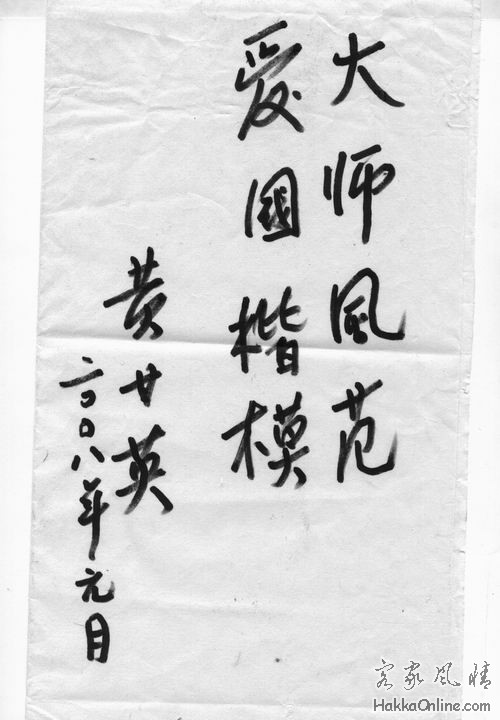 大师風范
爱國楷模
黄廿英
二〇〇八年元月
客家風情
HakkaOnline.com